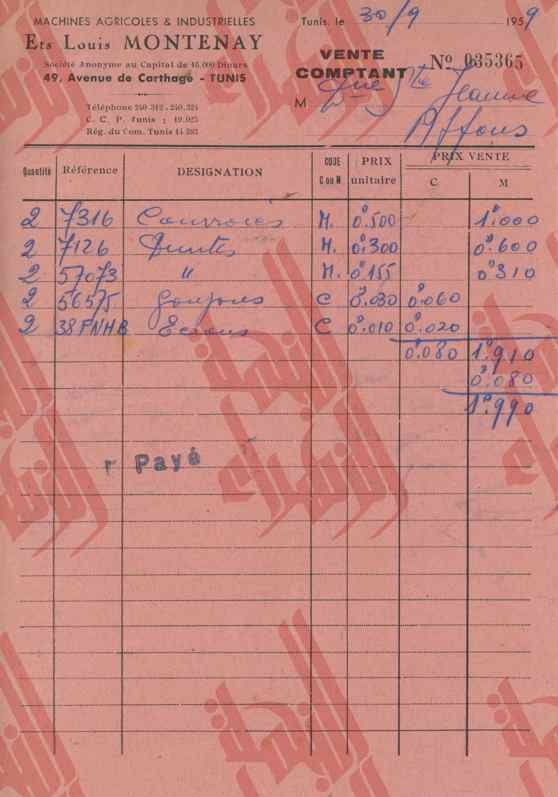 MACHINES AGRICOLES & INDUSTRIELLES
Ets Louis MONTENAY
Société Anonyme au Capital de 45.000 Dinars
49, Avenue de Carthage - TUNIS
Téléphone 240.312 - 240.324
C. C. P. Tunis : 19.025
Rég. du Com. Tunis 14.393
Tunis, le 30/9 1959
VENTE COMPTANT
No 035365
M Dne Ste Jeanne
Affous
Quantité Référence DESIGNATION CODE C ou M PRIX unitaire PRIX VENTE C M
2 7316 Courroies M. 0d.500 1d.000
2 7126 M. 0d.300 0d.600
2 57073 " M. 0d.155 0d.310
2 56575 Goujons C 0d.030 0d.060
2 38FNHB Ecrous C 0d.010 0d.020
0d.080 1d.910
0d.080
1d.990
Payé